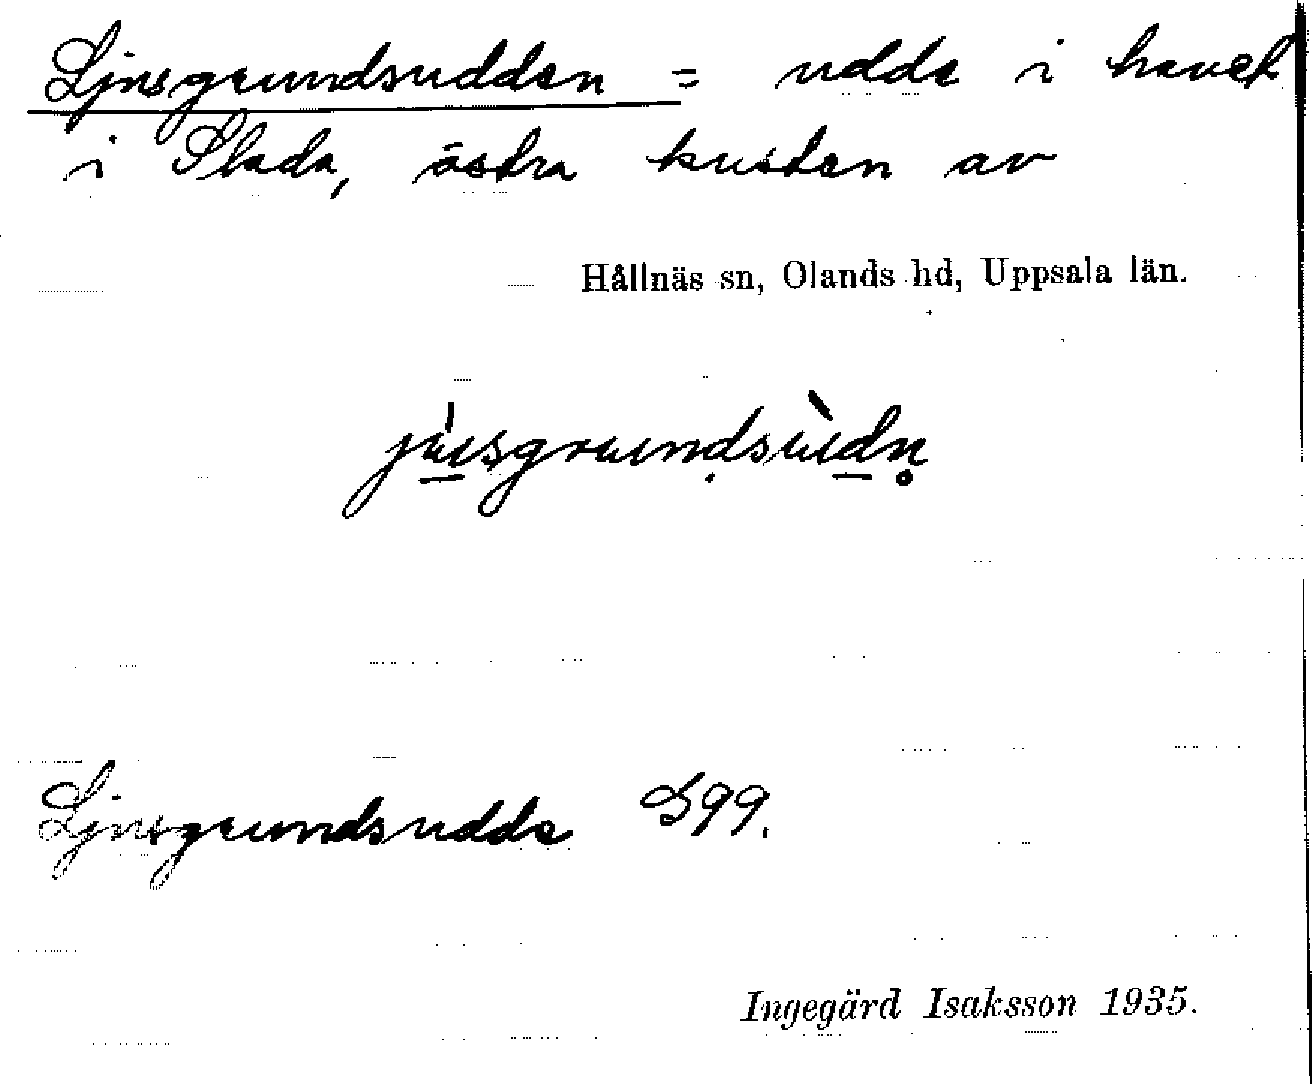 Ljusgrundsudden = udde i havet
i Slada, östra kusten av
Hållnäs sn, Olands hd, Uppsala län.
Ljusgrundsudde S99.
Ingegärd Isaksson 1935.